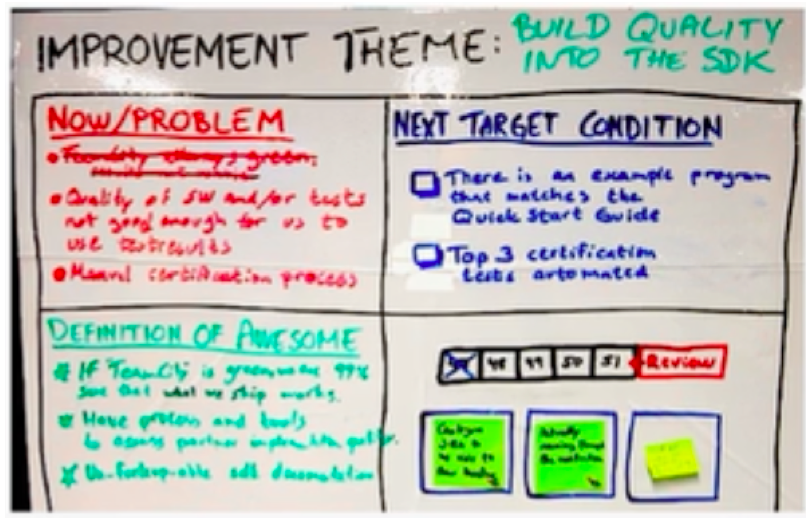 IMPROVEMENT THEME: BUILD QUALITY
INTO THE SDK
NOW/PROBLEM
Quality of SW and/or tests
not good enough for us to
use testresults
Manual certification process
NEXT TARGET CONDITION
There is an example program
that matches the
Quick Start Guide
Top 3 certification
tests automated
DEFINITION OF AWESOME
IF TeamCity is green we are 99%
sure that what we ship works.
Have process and tools
to assess partner implementation
sdk documentation
48 49 50 51 REVIEW